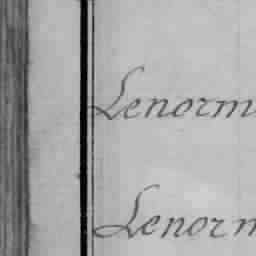 Lenorm
Lenorm